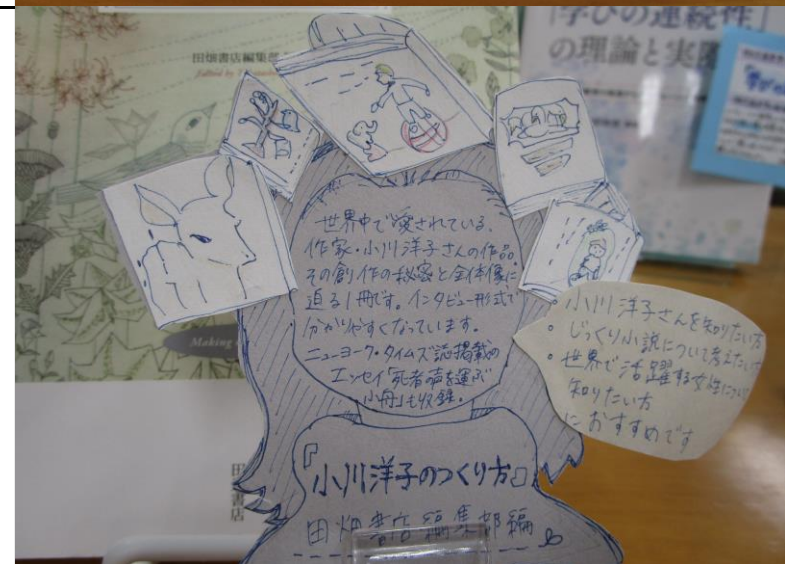 田畑書店編集部
Edited by
「学びの連続性」
の理論と実
世界中で愛されている、
作家・小川洋子さんの作品。
その創作の秘密と全体像に
迫る1冊です。インタビュー形式で
分かりやすくなっています。
ニューヨーク・タイムズ誌掲載の
エッセイ「死者の声を運ぶ
小舟」も収録。
・小川洋子さんを知りたい方
・じっくり小説について考えたい方
・世界で活躍する女性について
知りたい方
におすすめです
Making
『小川洋子のつくり方』
田畑書店編集部編
田
書店